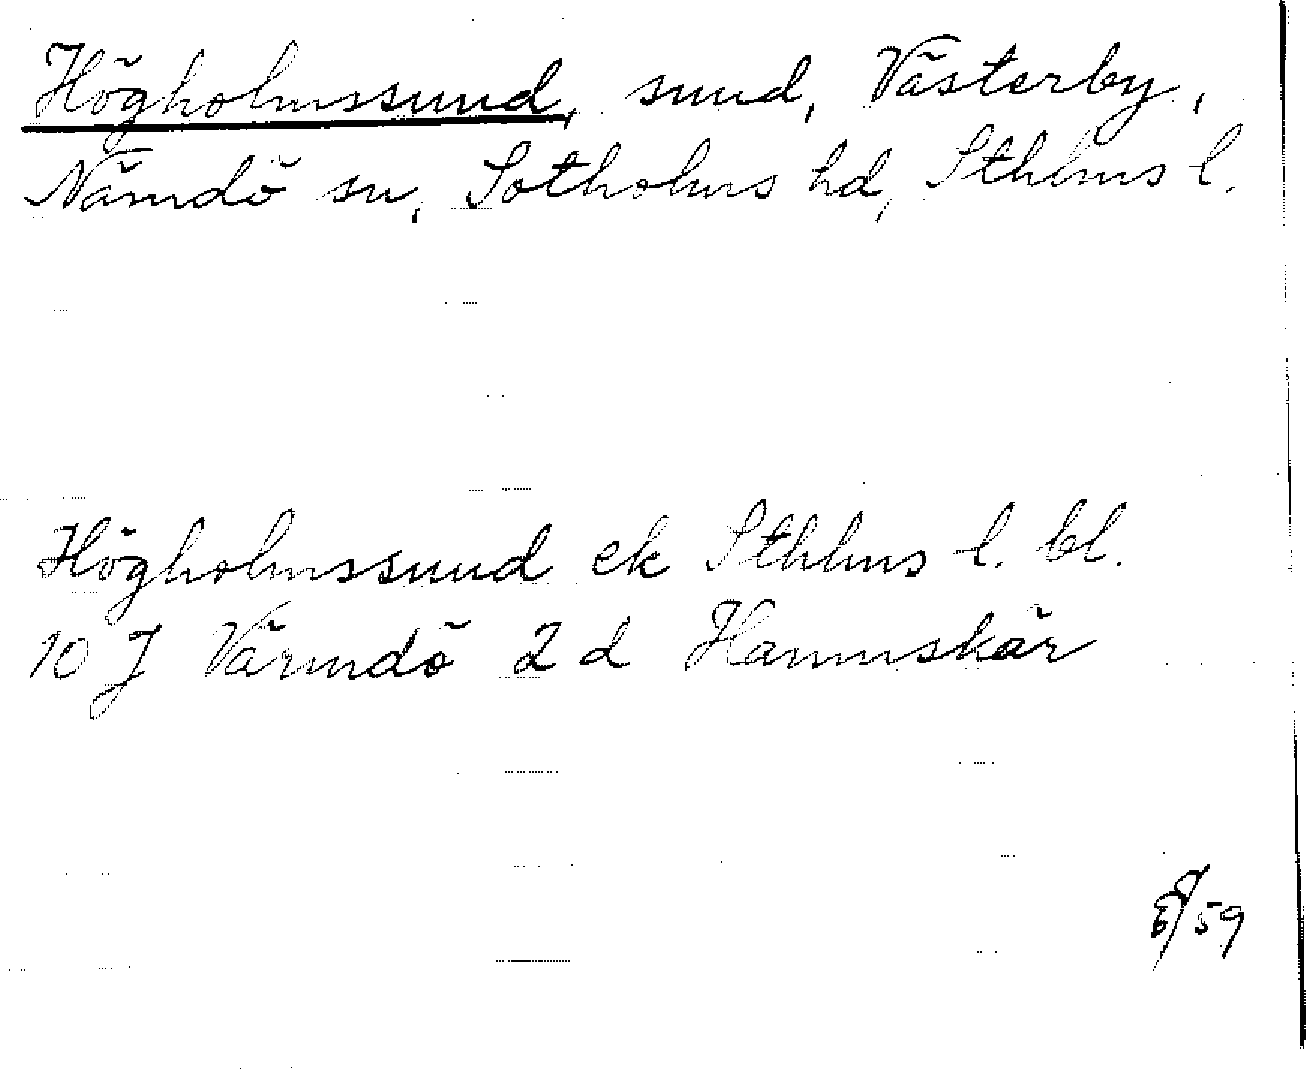 Högholmssund, sund, Västerby,
Nämdö sn, Sotholms hd, Sthlms l.
Högholmssund ek Sthlms l. bl.
10 J Värmdö 2 d Hamnskär
/59